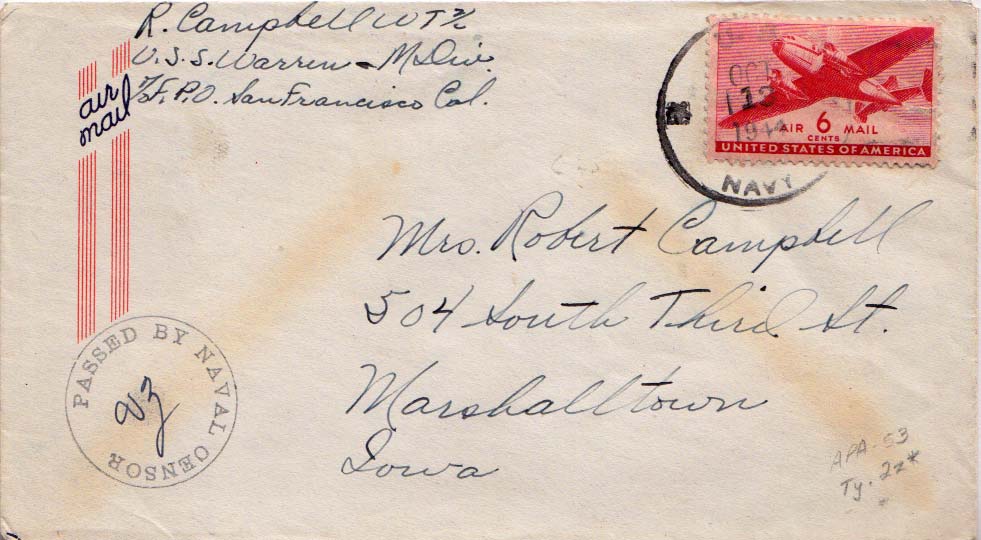 R. Campbell WT 2/c
U.S.S. Warren - M Div.
℅ F.P.O. San Francisco Cal.
air
mail
OCT
13
1944
NAVY
AIR 6 MAIL
CENTS
UNITED STATES OF AMERICA
Mrs. Robert Campbell
504 South Third St.
Marshalltown
Iowa
PASSED BY NAVAL CENSOR
APA-53
Ty. 2z*